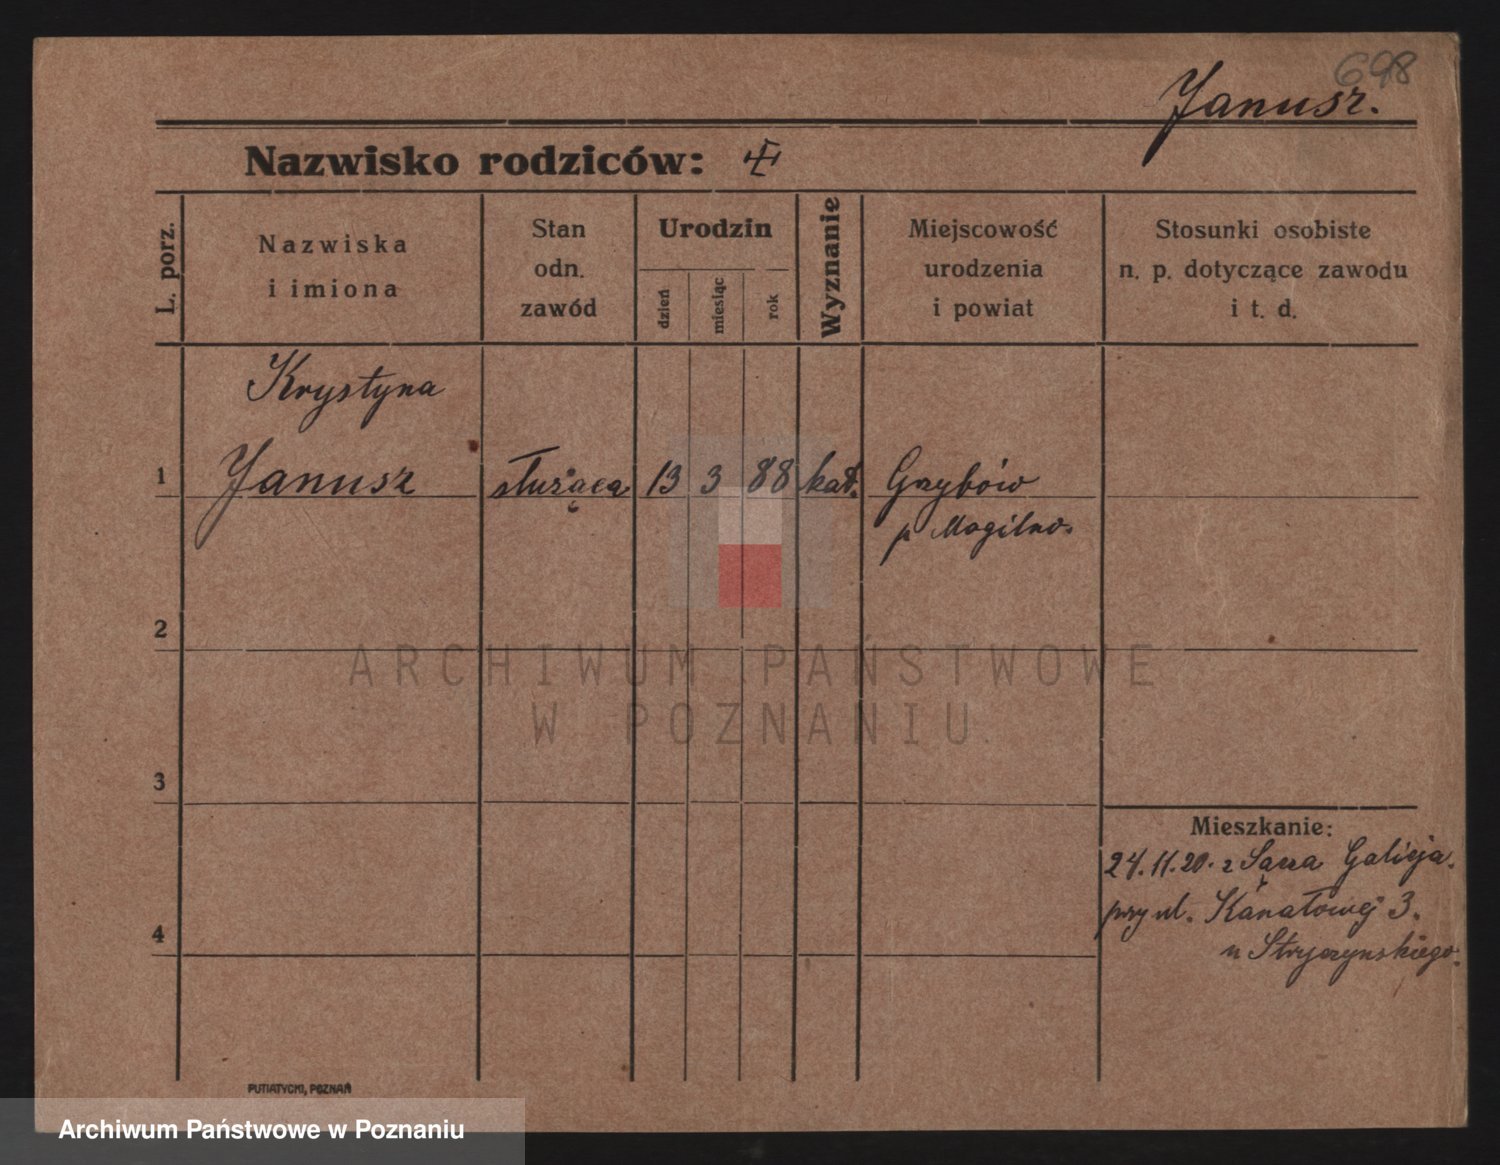 698
Janusz.
Nazwisko rodziców:
L. porz.
Nazwiska
i imiona
Stan
odn.
zawód
Urodzin
dzień
miesiąc
rok
Wyznanie
Miejscowość
urodzenia
i powiat
Stosunki osobiste
n. p. dotyczące zawodu
i t. d.
Krystyna
1 Janusz służąca 13 3 88 kat. Grzybów
p Mogilno.
2
ARCHIWUM PAŃSTWOWE
W POZNANIU
3
Mieszkanie:
24.11.20. z Sącza Galicja.
przy ul. Kanałowej 3.
4
u Stryczynskiego.
PUTIATYCKI, POZNAŃ
Archiwum Państwowe w Poznaniu